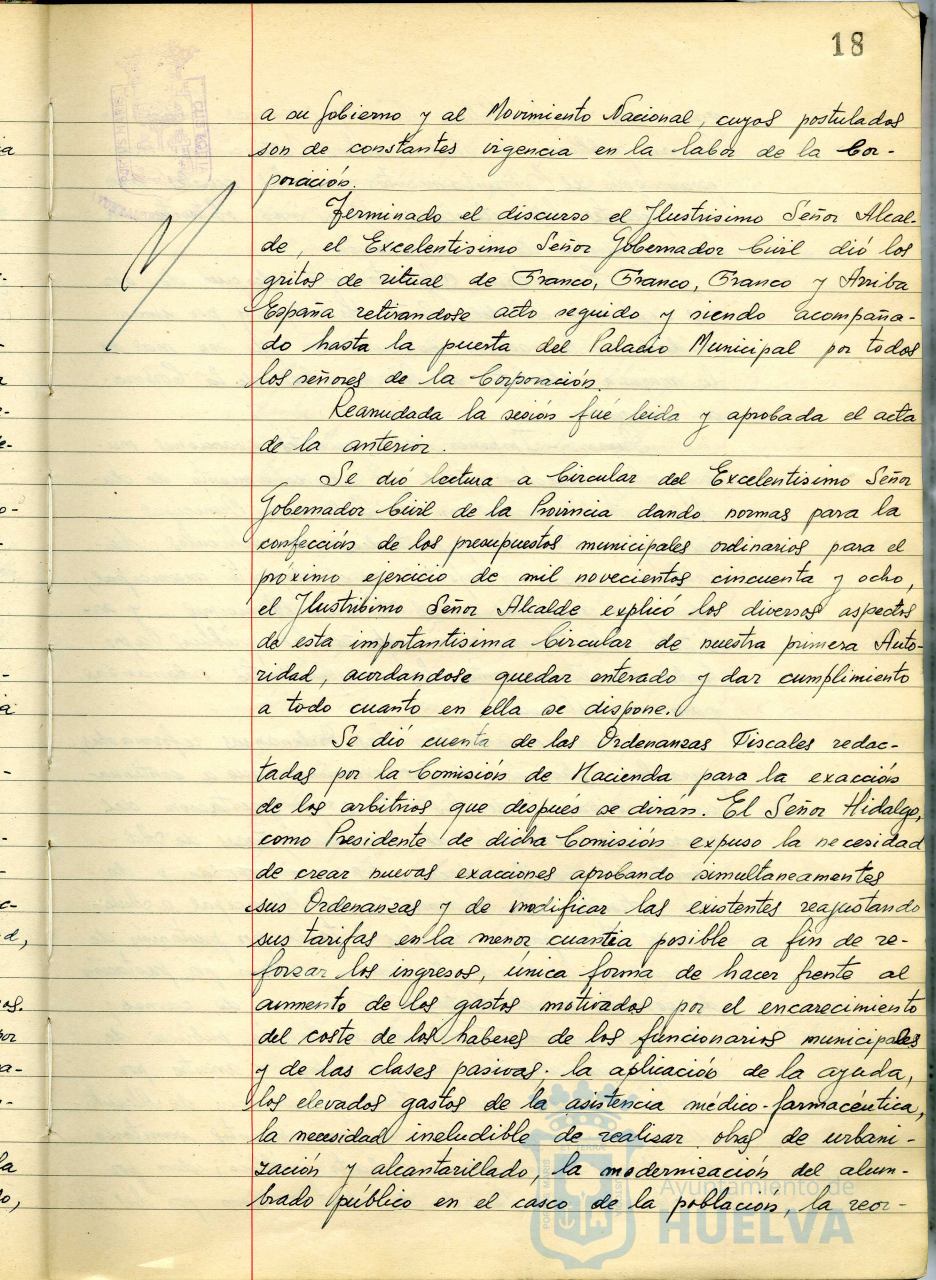 18
a su Gobierno y al Movimiento Nacional, cuyos postulados
son de constantes vigencia en la labor de la Cor-
poración.
Terminado el discurso el Ilustrisimo Señor Alcal-
de, el Excelentisimo Señor Gobernador Civil dió los
gritos de ritual de Franco, Franco, Franco y Arriba
España retirandose acto seguido y siendo acompaña-
do hasta la puerta del Palacio Municipal por todos
los señores de la Corporación.
Reanudada la sesión fué leida y aprobada el acta
de la anterior.
Se dió lectura a Circular del Excelentisimo Señor
Gobernador Civil de la Provincia dando normas para la
confección de los presupuestos municipales ordinarios para el
próximo ejercicio de mil novecientos cincuenta y ocho,
el Ilustrisimo Señor Alcalde explicó los diversos aspectos
de esta importantisima Circular de nuestra primera Auto-
ridad, acordandose quedar enterado y dar cumplimiento
a todo cuanto en ella se dispone.
Se dió cuenta de las Ordenanzas Fiscales redac-
tadas por la Comisión de Hacienda para la exacción
de los arbitrios que después se dirán. El Señor Hidalgo,
como Presidente de dicha Comisión expuso la necesidad
de crear nuevas exacciones aprobando simultaneamentes
sus Ordenanzas y de modificar las existentes reajustando
sus tarifas en la menor cuantía posible a fin de re-
forzar los ingresos, única forma de hacer frente al
aumento de los gastos motivados por el encarecimiento
del coste de los haberes de los funcionarios municipales
y de las clases pasivas. la aplicación de la ayuda,
los elevados gastos de la asistencia médico-farmacéutica,
la necesidad ineludible de realizar obras de urbani-
zación y alcantarillado, la modernización del alum-
brado público en el casco de la población, la reor-
Ayuntamiento de
HUELVA